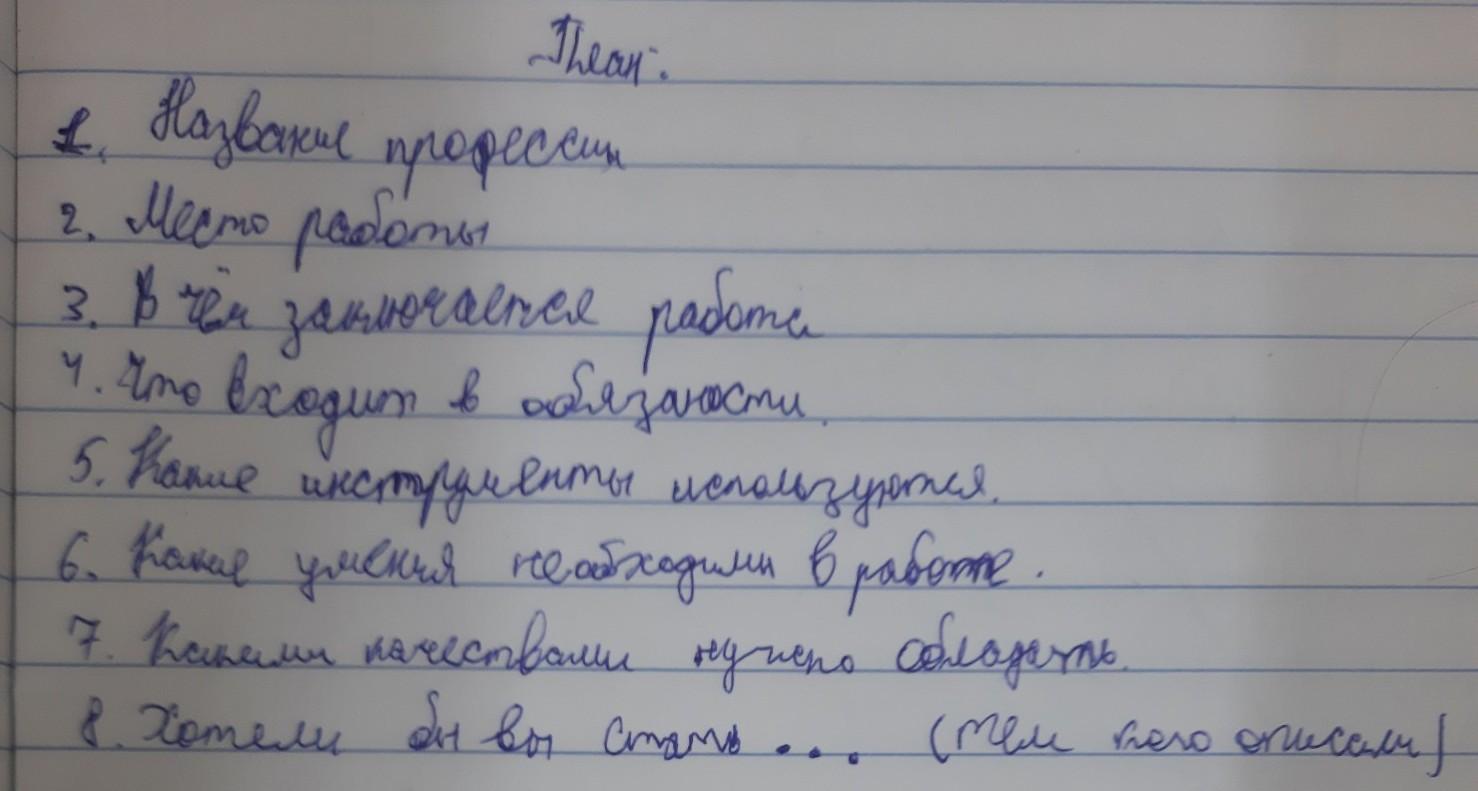 План.
1. Название профессии
2. Место работы
3. В чём заключается работа
4. Что входит в обязаности.
5. Какие инструменты используются.
6. Какие умения необходимы в работе.
7. Какими качествами нужно обладать.
8. Хотели бы вы стать... (тем кого описали)